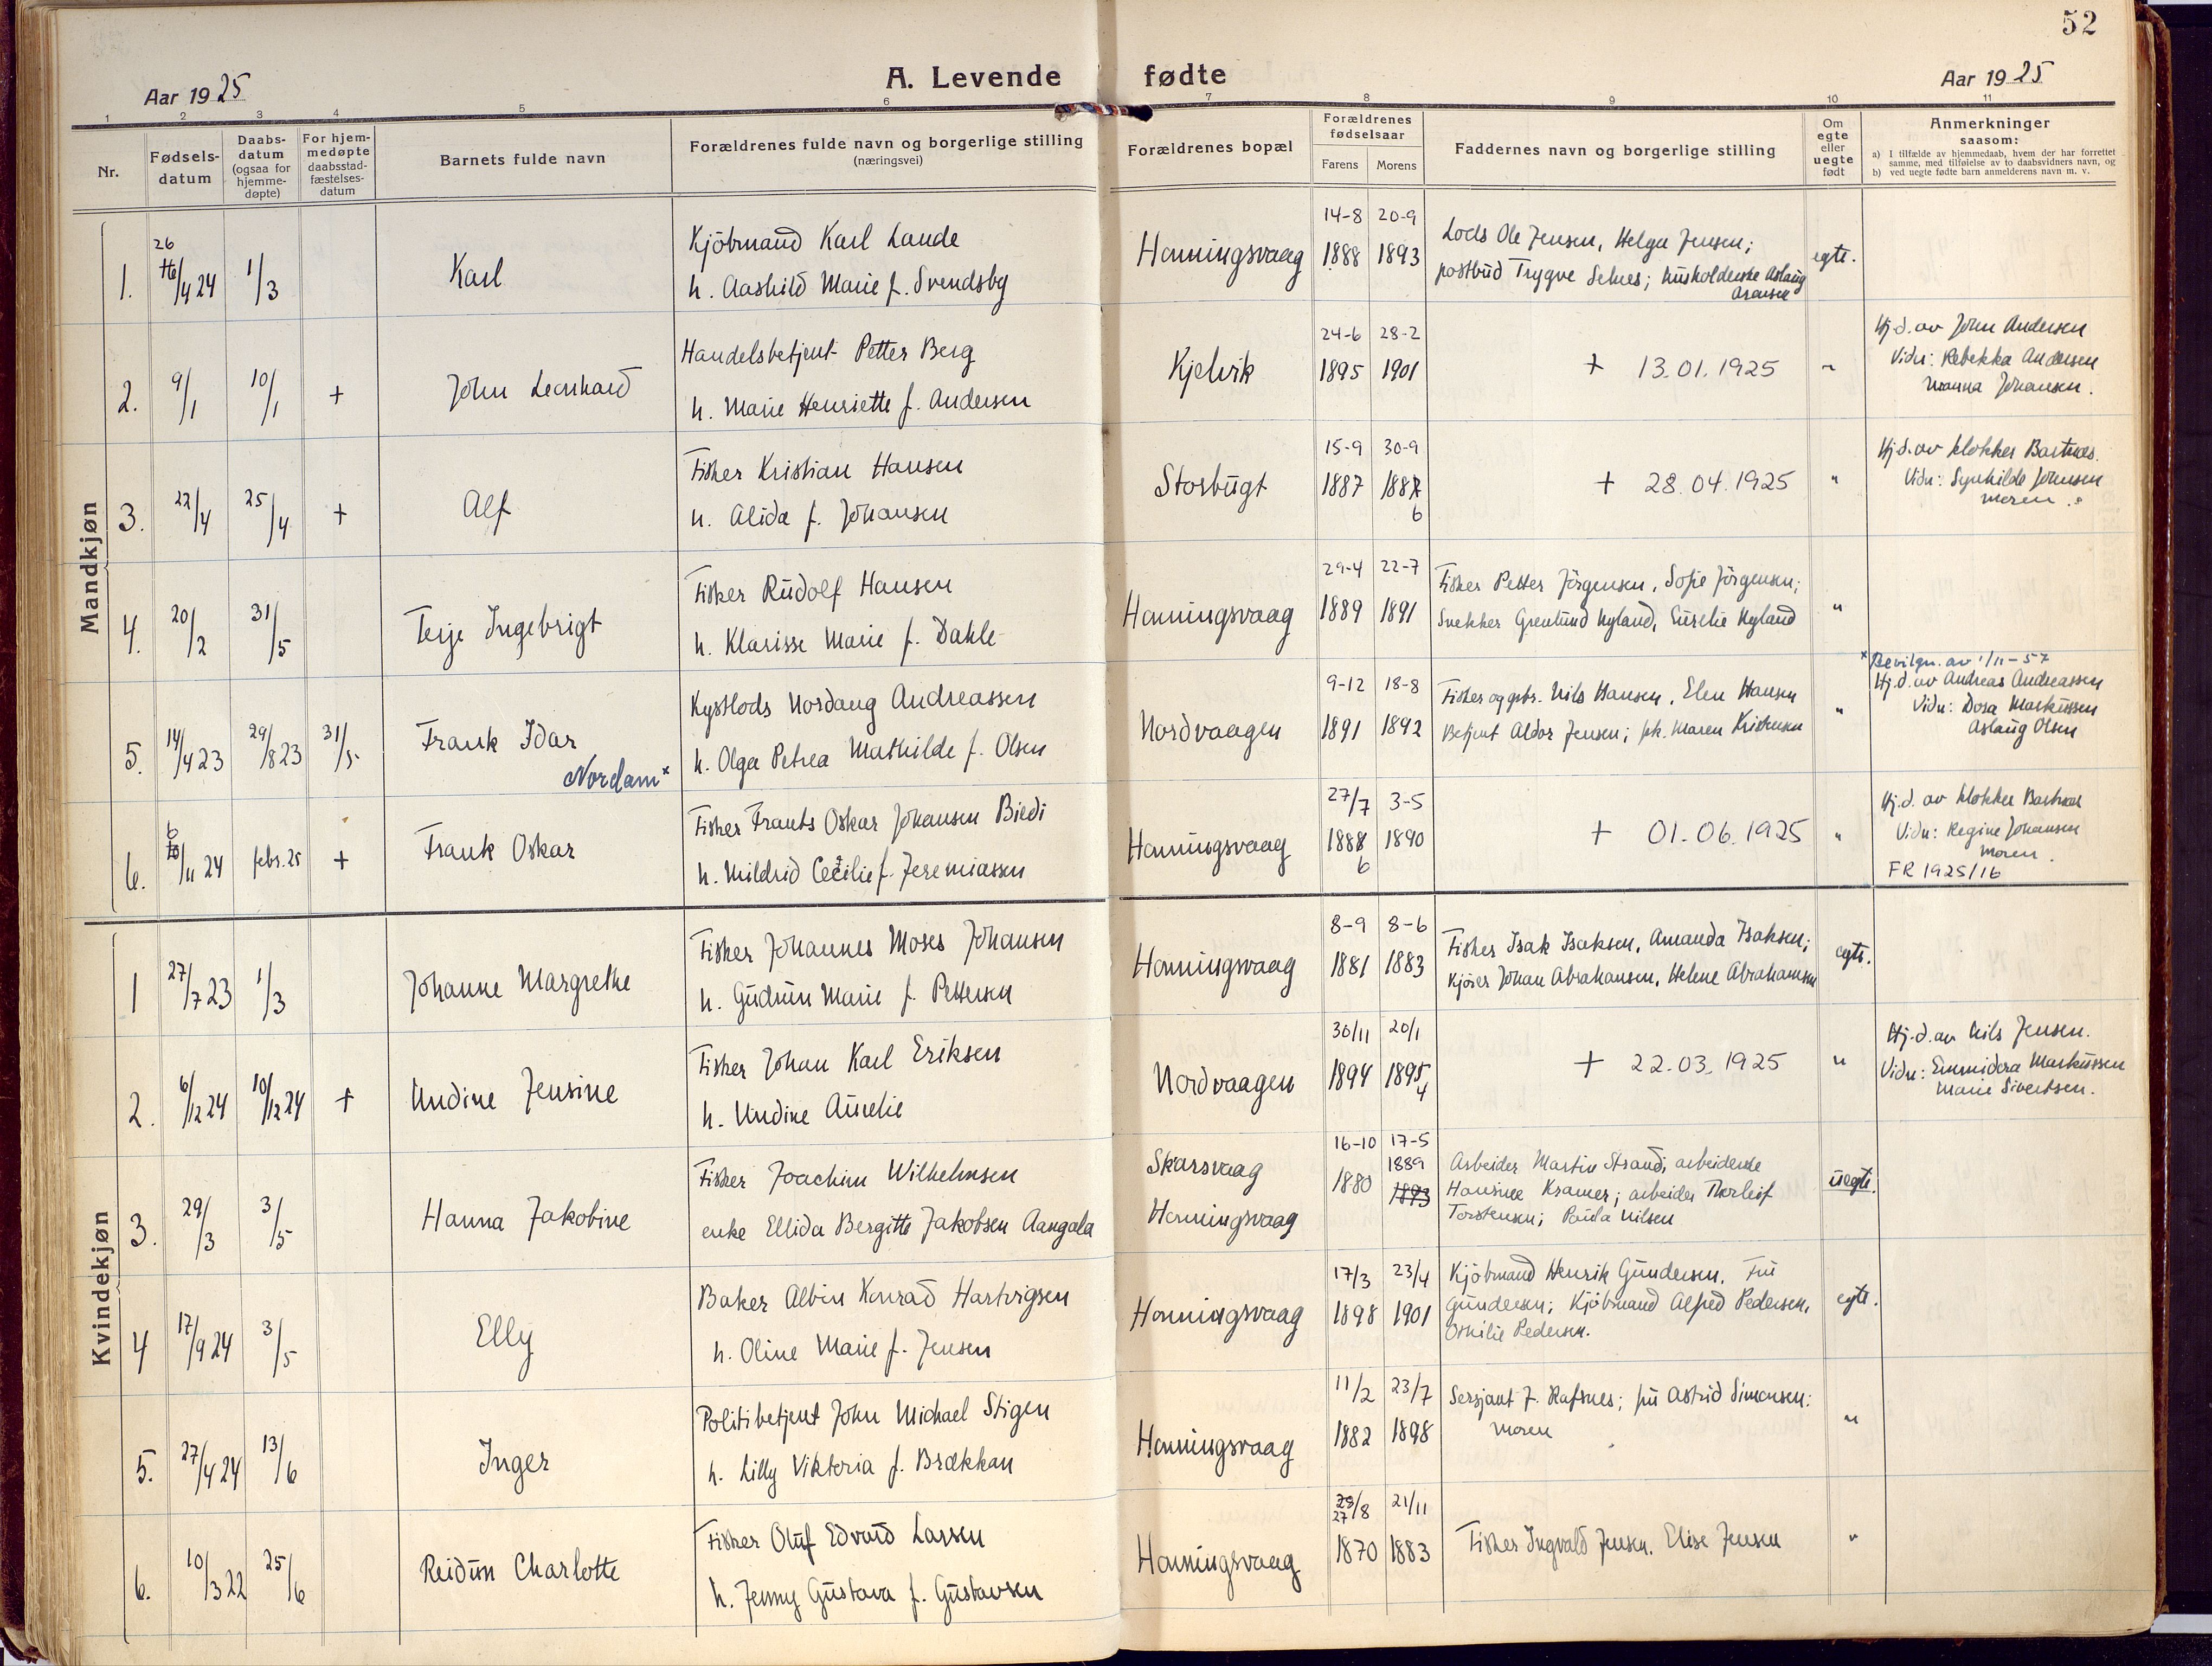 52
A. Levende fødte
Aar 1925
Aar 1925
1 2 3 4 5 6 7 8 9 10 11
Nr.
Fødsels-
datum
Daabs-
datum
(ogsaa for
hjemme-
døpte)
For hjem-
medøpte
daabsstad-
fæstelses-
datum
Barnets fulde navn
Forældrenes fulde navn og borgerlige stilling
(næringsvei)
Forældrenes bopæl
Forældrenes
fødselsaar
Farens Morens
Faddernes navn og borgerlige stilling
Om
egte
eller
uegte
født
Anmerkninger
saasom:
a) I tilfælde av hjemmedaab, hvem der har forrettet
samme, med tilføielse av to daabsvidners navn, og
b) ved uegte fødte barn anmelderens navn m. v.
Mandkjøn
1. 26 16/4 24 1/3 Karl
Kjöbmand Karl Lande
h. Aashild Marie f. Svendsby
Honningsvaag
14-8 20-9
1888 1893
Lods Ole Jensen, Helga Jensen;
postbud Trygve Selnes; husholderske Aslaug
Aronsen
egte.
2. 9/1 10/1 + John Leonhard
Handelsbetjent Petter Berg
h. Marie Henriette f. Andersen
Kjelvik
24-6 28-2
1895 1901
+ 13.01.1925
"
Hj.d. av John Andersen
Vidn: Rebekka Andersen
Nanna Johansen.
3. 22/4 25/4 + Alf
Fisker Kristian Hansen
h. Alida f. Johansen
Storbugt
15-9 30-9
1887 1887
6
+ 28.04.1925
"
Hj.d. av klokker Bastnes.
Vidn: Synhilde Johnsen
moren.
4. 20/2 31/5 Terje Ingebrigt
Fisker Rudolf Hansen
h. Klarisse Marie f. Dahle
Honningsvaag
29-4 22-7
1889 1891
Fisker Petter Jörgensen, Sofie Jörgensen;
Snekker Grenlund Nyland, Nyland
"
5. 14/4 23 29/8 23 31/5 Frank Idar
Nordam x
Kystlods Nordang Andreassen
h. Olga Petrea Mathilde f. Olsen
Nordvaagen
9-12 18-8
1891 1892
Fisker og gbr. Nils Hansen, Elen Hansen
Betjent Aldor Jensen; frk. Maren Kristensen
"
x Bevilgn. av 1/11-57
Hj.d. av Andreas Andreassen
Vidn: Dosa Markussen
Aslaug Olsen
6. 6 10/11 24 febr. 25 + Frank Oskar
Fisker Frants Oskar Johansen Biedi
h. Mildrid Cecilie f. Jeremiassen
Honningsvaag
27/7 3-5
1888 1890
6
+ 01.06.1925
"
Hj.d. av klokker Bastnes
Vidn: Regine Johansen
moren.
FR 1925/16
Kvindekjøn
1 27/7 23 1/3 Johanne Margrethe
Fisker Johannes Moses Johansen
h. Gudrun Marie f. Pettersen
Honningsvaag
8-9 8-6
1881 1883
Fisker Isak Isaksen, Amanda Isaksen;
Kjörer Johan Abrahamsen, Helene Abrahamsen
egte.
2. 6/12 24 10/12 24 + Undine Jensine
Fisker Johan Karl Eriksen
h. Undine Aurelie
Nordvaagen
30/11 20/1
1894 1895
4
+ 22.03.1925
"
Hj.d. av Nils Jensen.
Vidn: Emmidora Markussen
Marie Sivertsen.
3. 29/3 3/5 Hanna Jakobine
Fisker Joachim Wilhelmsen
enke Ellida Bergitte Jakobsen Aangala
Skarsvaag
Honningsvaag
16-10 17-5
1880 1889
1893
Arbeider Martin Strand; arbeiderske
Hansine Kramer; arbeider Thorleif
Torstensen; Paula Nilsen
uegte.
4 17/9 24 3/5 Elly
Baker Albin Konrad Hartvigsen
h. Oline Marie f. Jensen
Honningsvaag
17/3 23/4
1898 1901
Kjöbmand Henrik Gundersen, Fru
Gundersen; Kjöbmand Alfred Pedersen,
Othilie Pedersen.
egte.
5. 27/4 24 13/6 Inger
Politibetjent John Michael Stigen
h. Lilly Viktoria f. Brækkan
Honningsvaag
11/2 23/7
1882 1898
Sersjant J. Rafsnes; fru Astrid Simonsen;
moren
"
6. 10/3 22 25/6 Reidun Charlotte
Fisker Oluf Edvard Larsen
h. Jenny Gustava f. Gustavsen
Honningsvaag
28/8 21/11
27
1870 1883
Fisker Ingvald Jensen. Elise Jensen
"